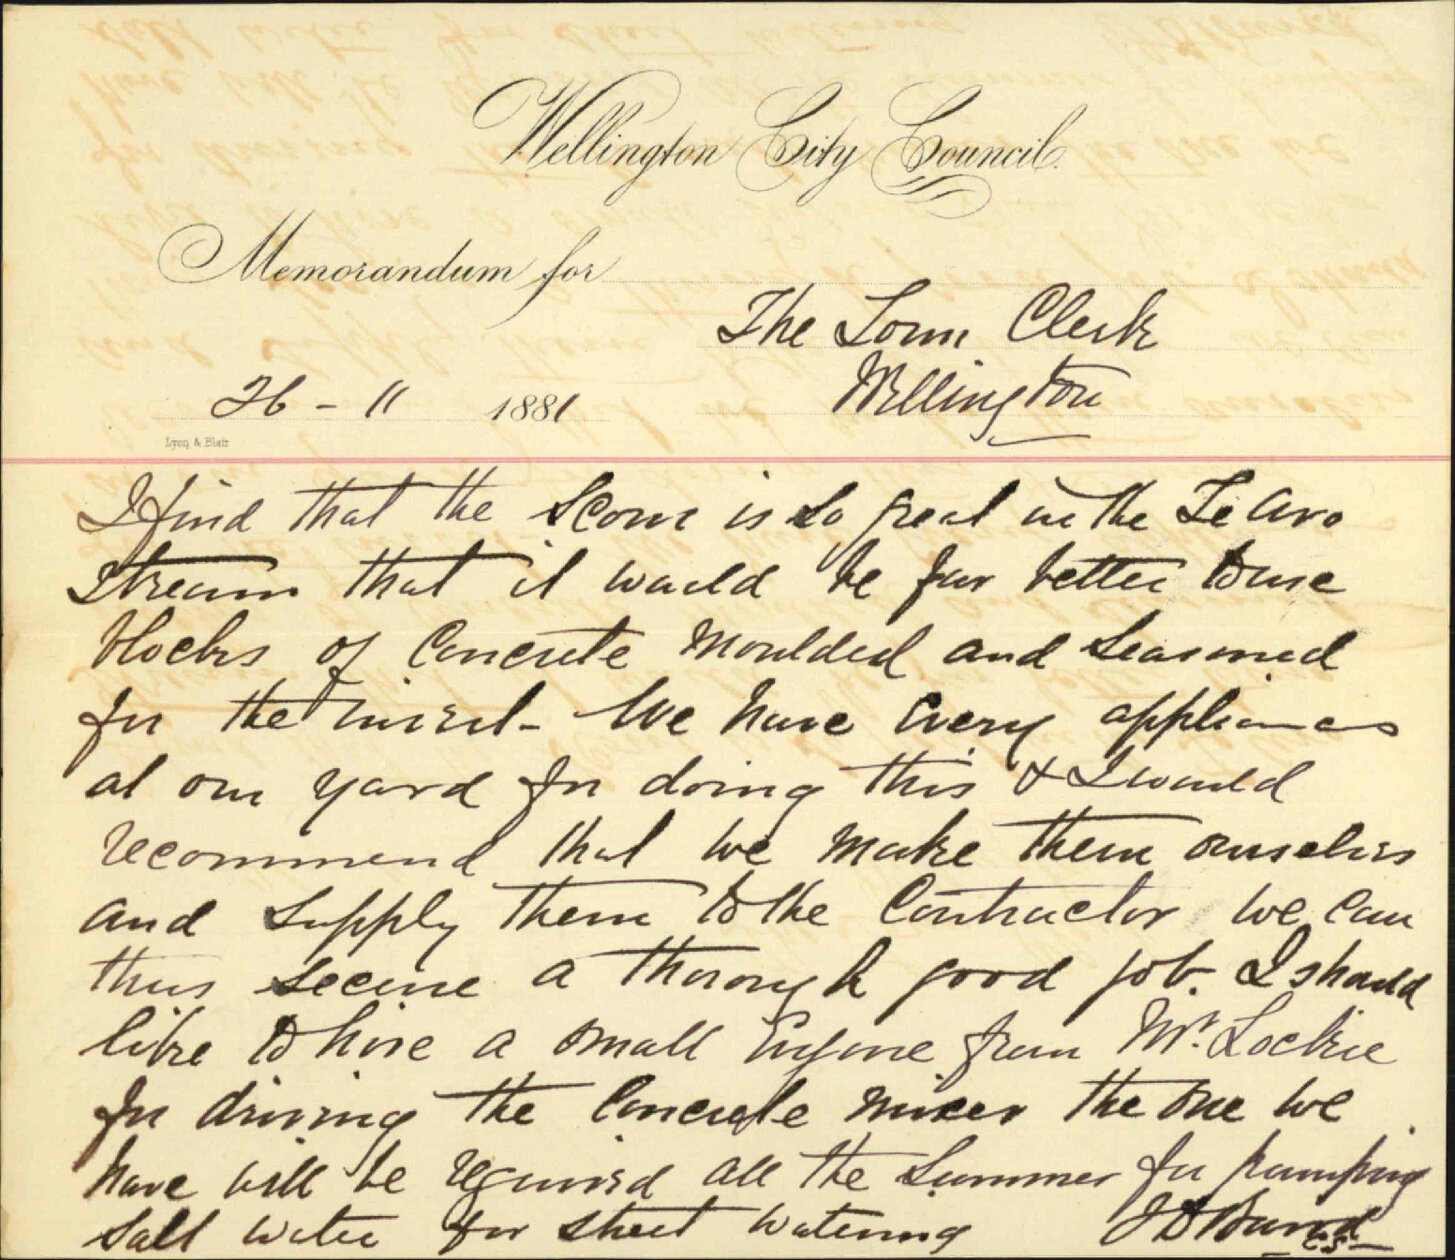 Wellington City Council.
Memorandum for
The Town Clerk
Wellington
26 - 11 1881
Lyon & Blair
I find that the scour is so great in the Te Aro
stream that it would be far better to use
blocks of concrete moulded and seasoned
for the invert - We have every appliances
at our yard for doing this & I would
recommend that we make them ourselves
and supply them to the Contractor we can
thus secure a thorough good job. I should
like to hire a small Engine from Mr. Lockie
for driving the concrete mixer the one we
have will be required all the summer for pumping
salt water for street watering J D Baird
C.S.